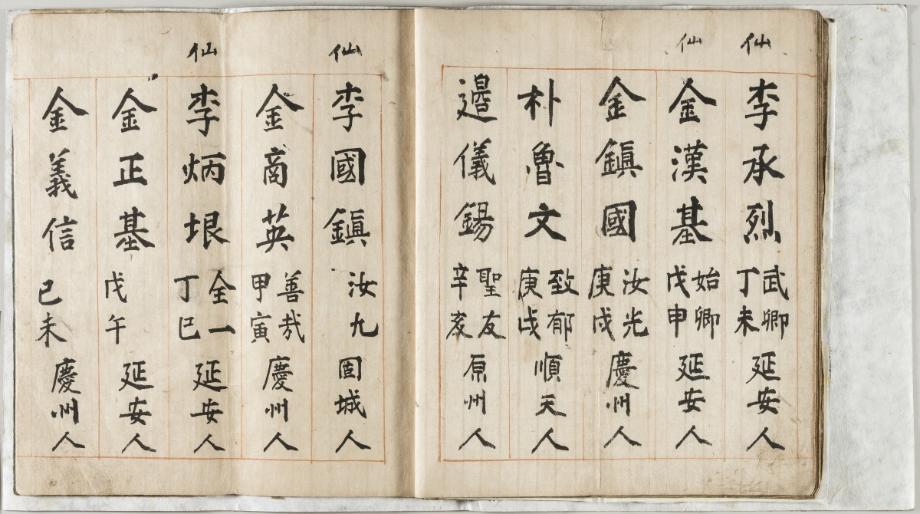 仙 李承烈 武卿 丁未 延安人
仙 金漢基 始卿 戊申 延安人
金鎭國 汝光 庚戌 慶州人
朴魯文 致郁 庚戌 順天人
邉儀錫 聖友 辛亥 原州人
仙 李國鎭 汝九 固城人
金商英 善哉 甲寅 慶州人
仙 李炳垠 全一 丁巳 延安人
金正基 戊午 延安人
金義信 己未 慶州人